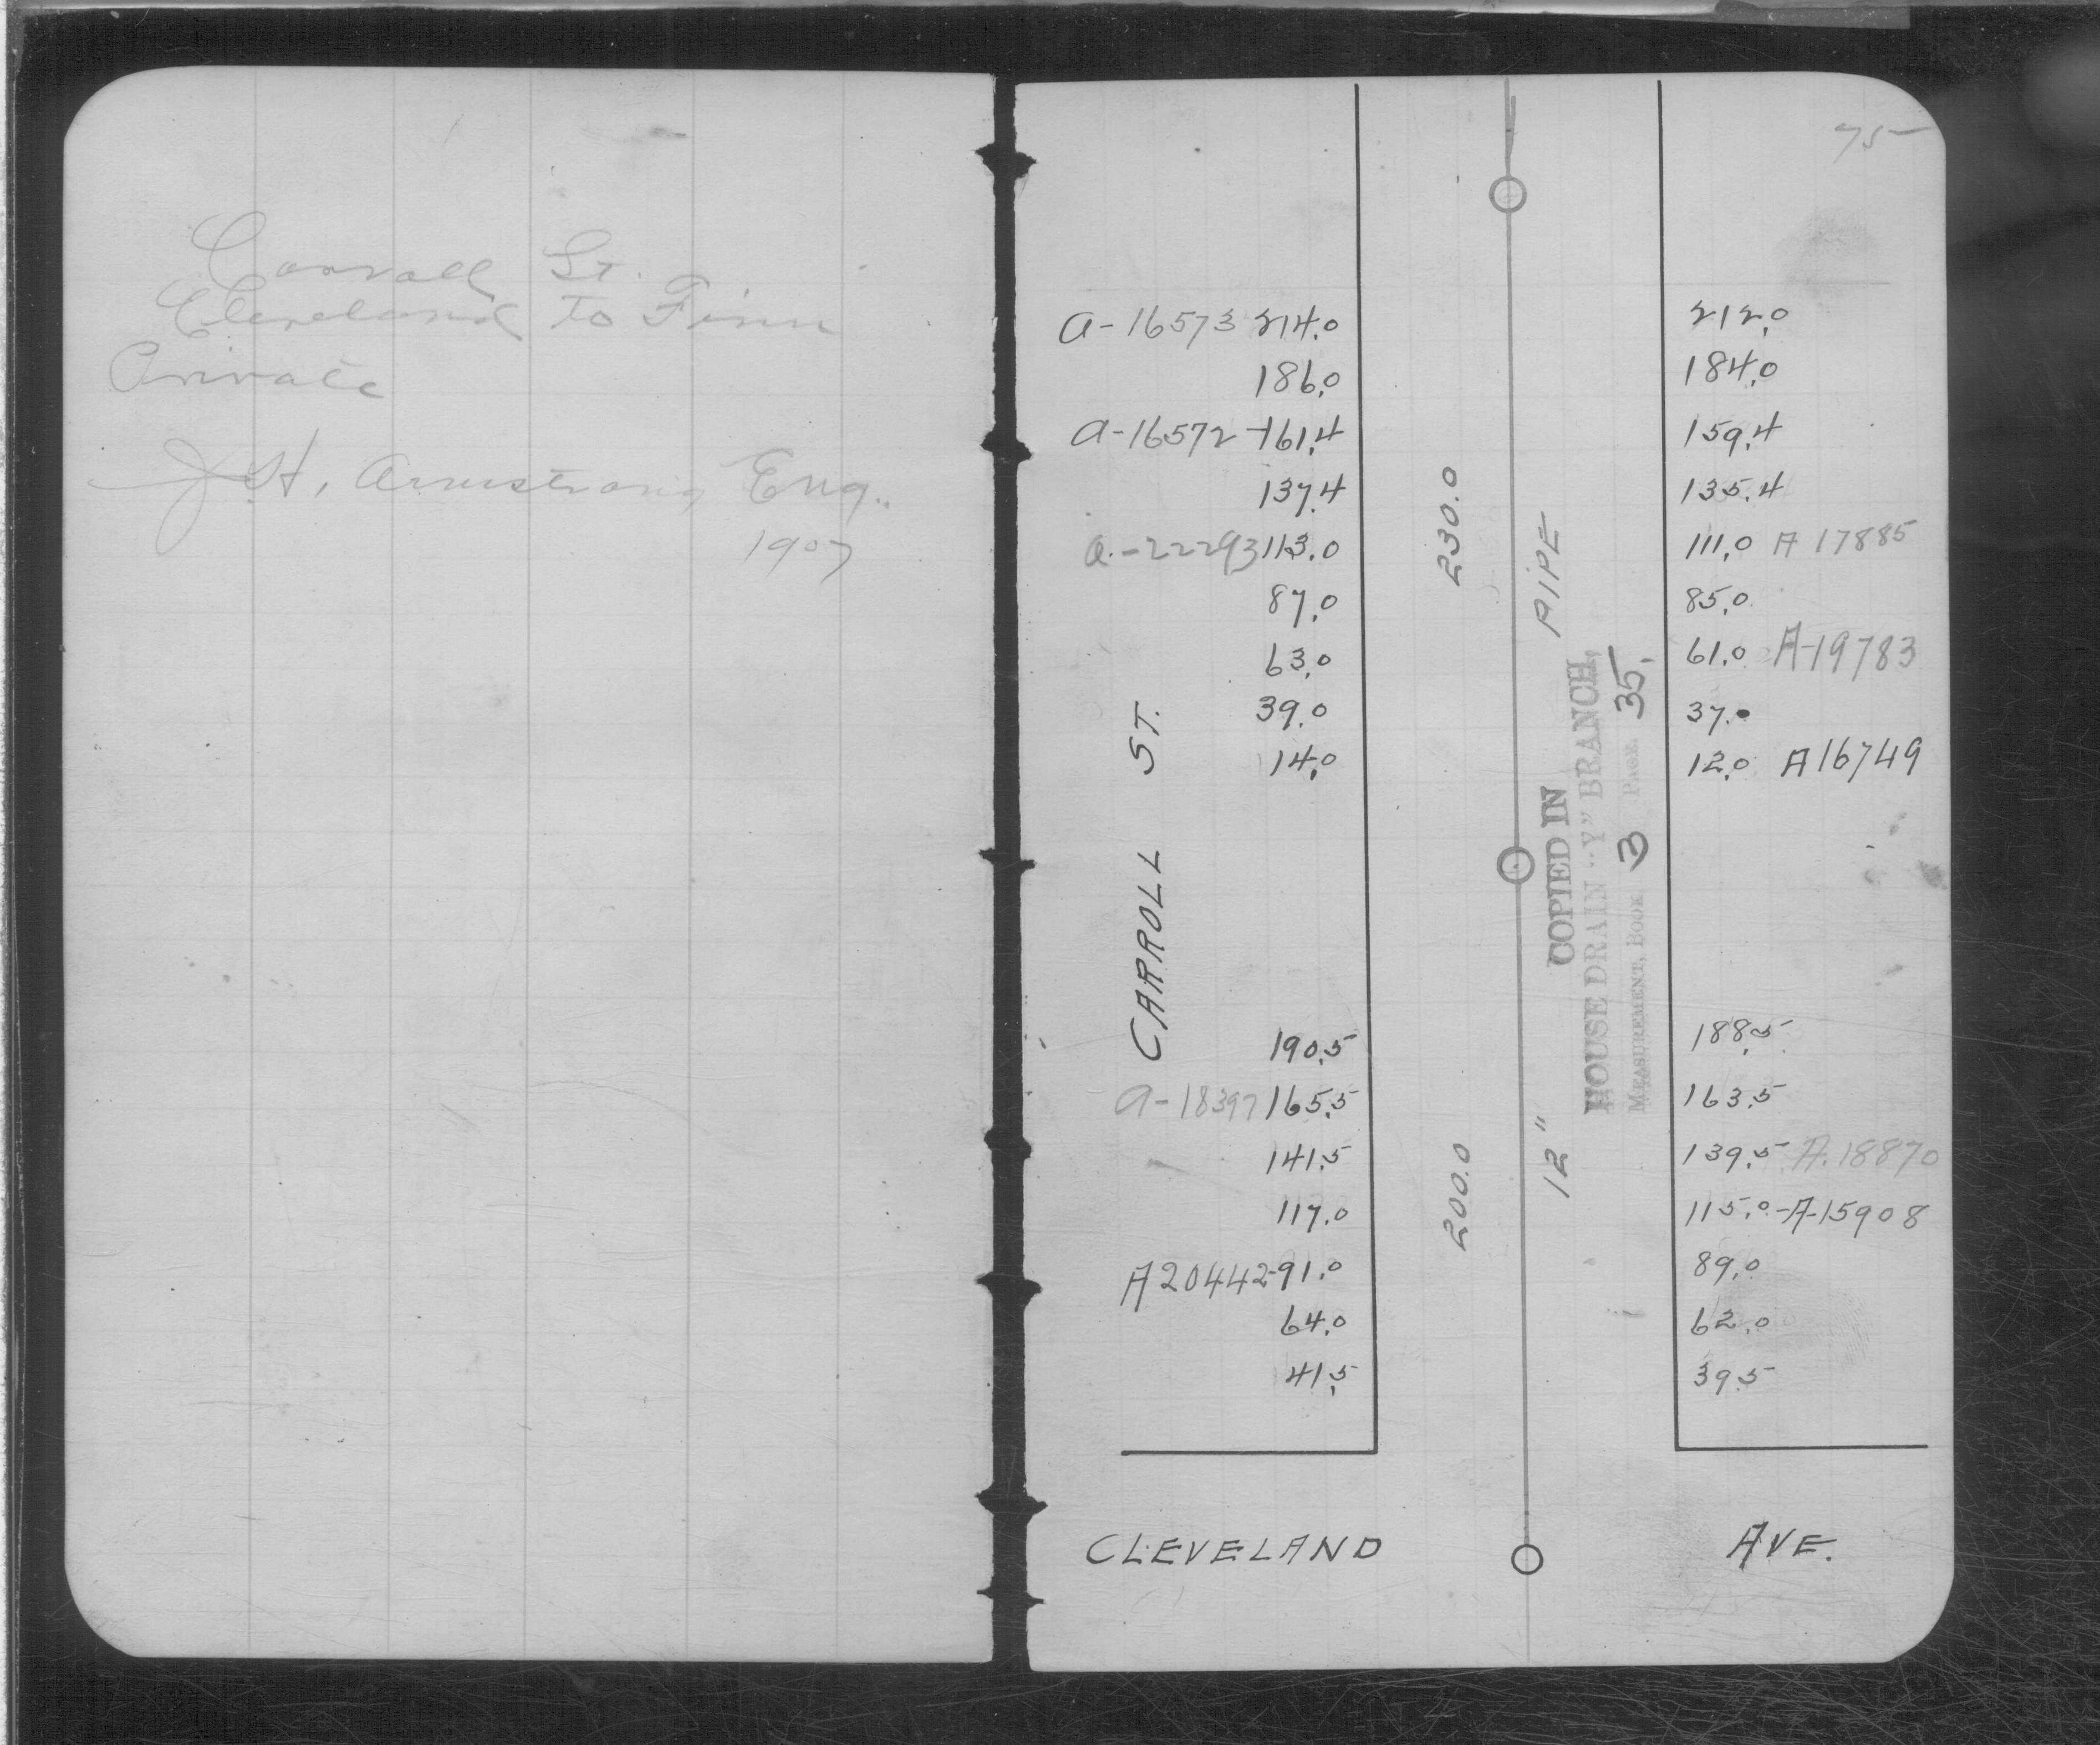 Carroll St.
Cleveland To Finn
Private
J. H. Armstrong Eng.
1907
75
a-16573 214.0
186.0
a-16572-161.4
137.4
a.-22293 113.0
87.0
63.0
39.0
14.0
190.5
a-18397 165.5
141.5
117.0
A20442-91.0
64.0
41.5
CARROLL ST.
230.0
200.0
12" PIPE
COPIED IN
HOUSE DRAIN "Y" BRANCH,
MEASUREMENT, BOOK 3 PAGE 35.
212.0
184.0
159.4
135.4
111.0 A 17885
85.0
61.0 A-19783
37.0
12.0 A16749
188.5
163.5
139.5 A.18870
115.0-A-15908
89.0
62.0
39.5
CLEVELAND AVE.